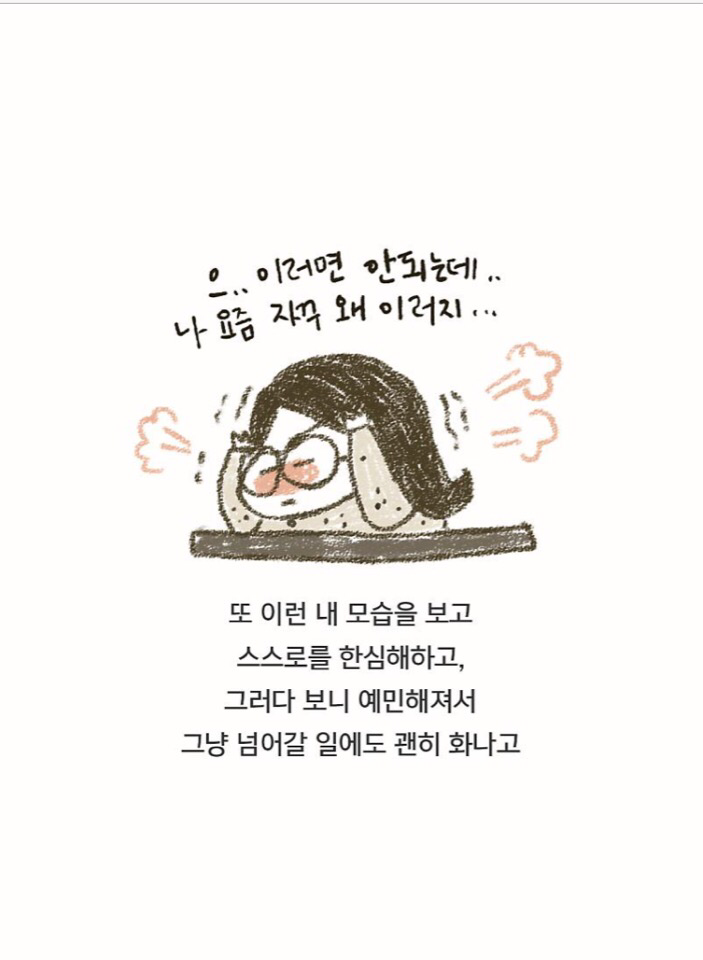 으.. 이러면 안되는데..
나 요즘 자꾸 왜 이러지...
또 이런 내 모습을 보고
스스로를 한심해하고,
그러다 보니 예민해져서
그냥 넘어갈 일에도 괜히 화나고